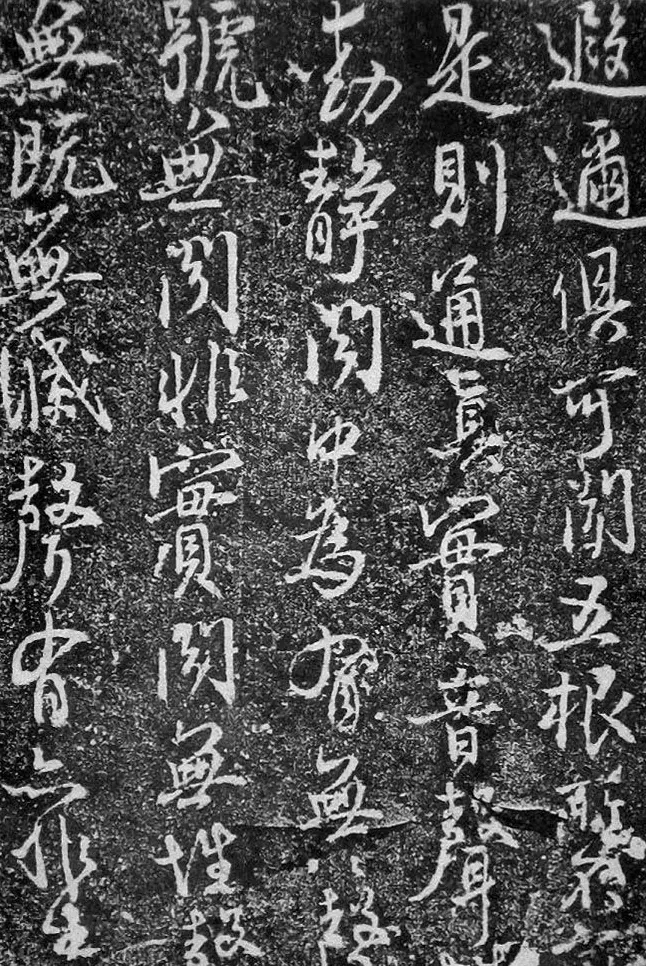 遐邇俱可聞五根所齊
是則通真實音聲
動靜聞中為有無〻聲
號無聞非實聞無性聲
無既無滅聲有亦非生